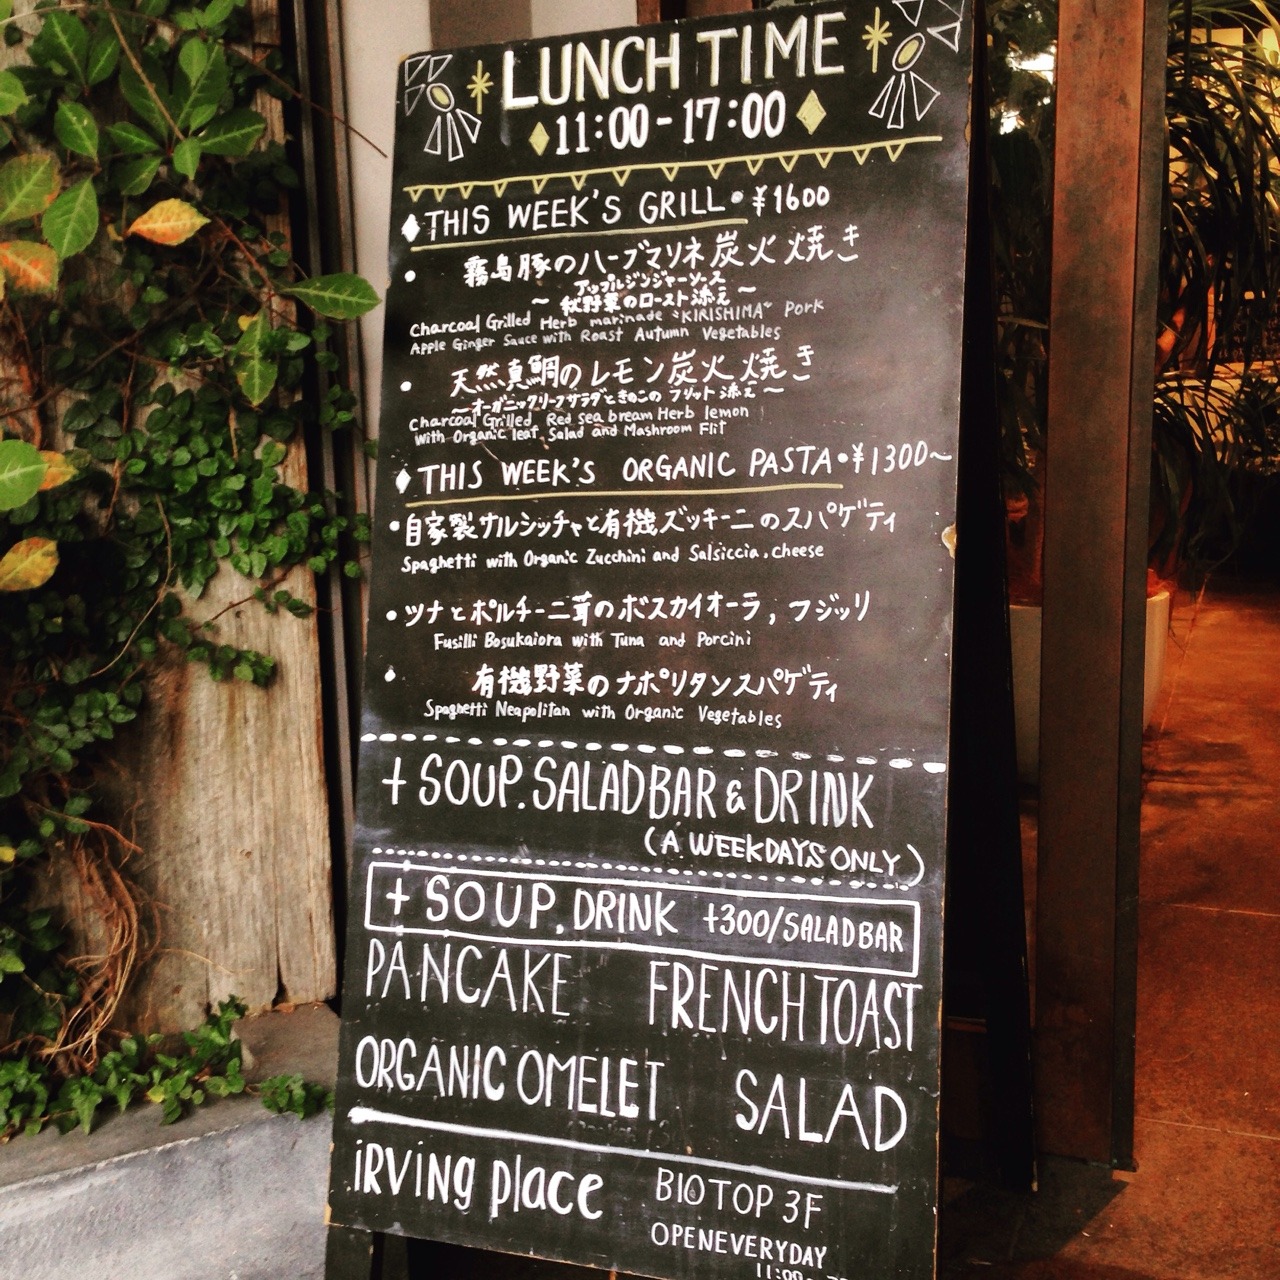 LUNCH TIME
11:00-17:00
THIS WEEK'S GRILL • ¥1600
• 霧島豚のハーブマリネ炭火焼き
アップルジンジャーソース
～ 秋野菜のロースト添え ～
Charcoal Grilled Herb marinade "KIRISHIMA" Pork
Apple Ginger Sauce with Roast Autumn Vegetables
• 天然真鯛のレモン炭火焼き
～オーガニックリーフサラダときのこのフリット添え～
Charcoal Grilled Red sea bream Herb lemon
with Organic leaf Salad and Mashroom Flit
THIS WEEK'S ORGANIC PASTA • ¥1300～
• 自家製サルシッチャと有機ズッキーニのスパゲティ
Spaghetti with Organic Zucchini and Salsiccia.cheese
• ツナとポルチーニ茸のボスカイオーラ, フジッリ
Fusilli Bosukaiora with Tuna and Porcini
• 有機野菜のナポリタンスパゲティ
Spaghetti Neapolitan with Organic Vegetables
+ SOUP. SALADBAR & DRINK
(A WEEKDAYS ONLY)
+ SOUP. DRINK +300/SALADBAR
PANCAKE FRENCH TOAST
ORGANIC OMELET SALAD
iRVing place BIOTOP 3F
OPENEVERYDAY